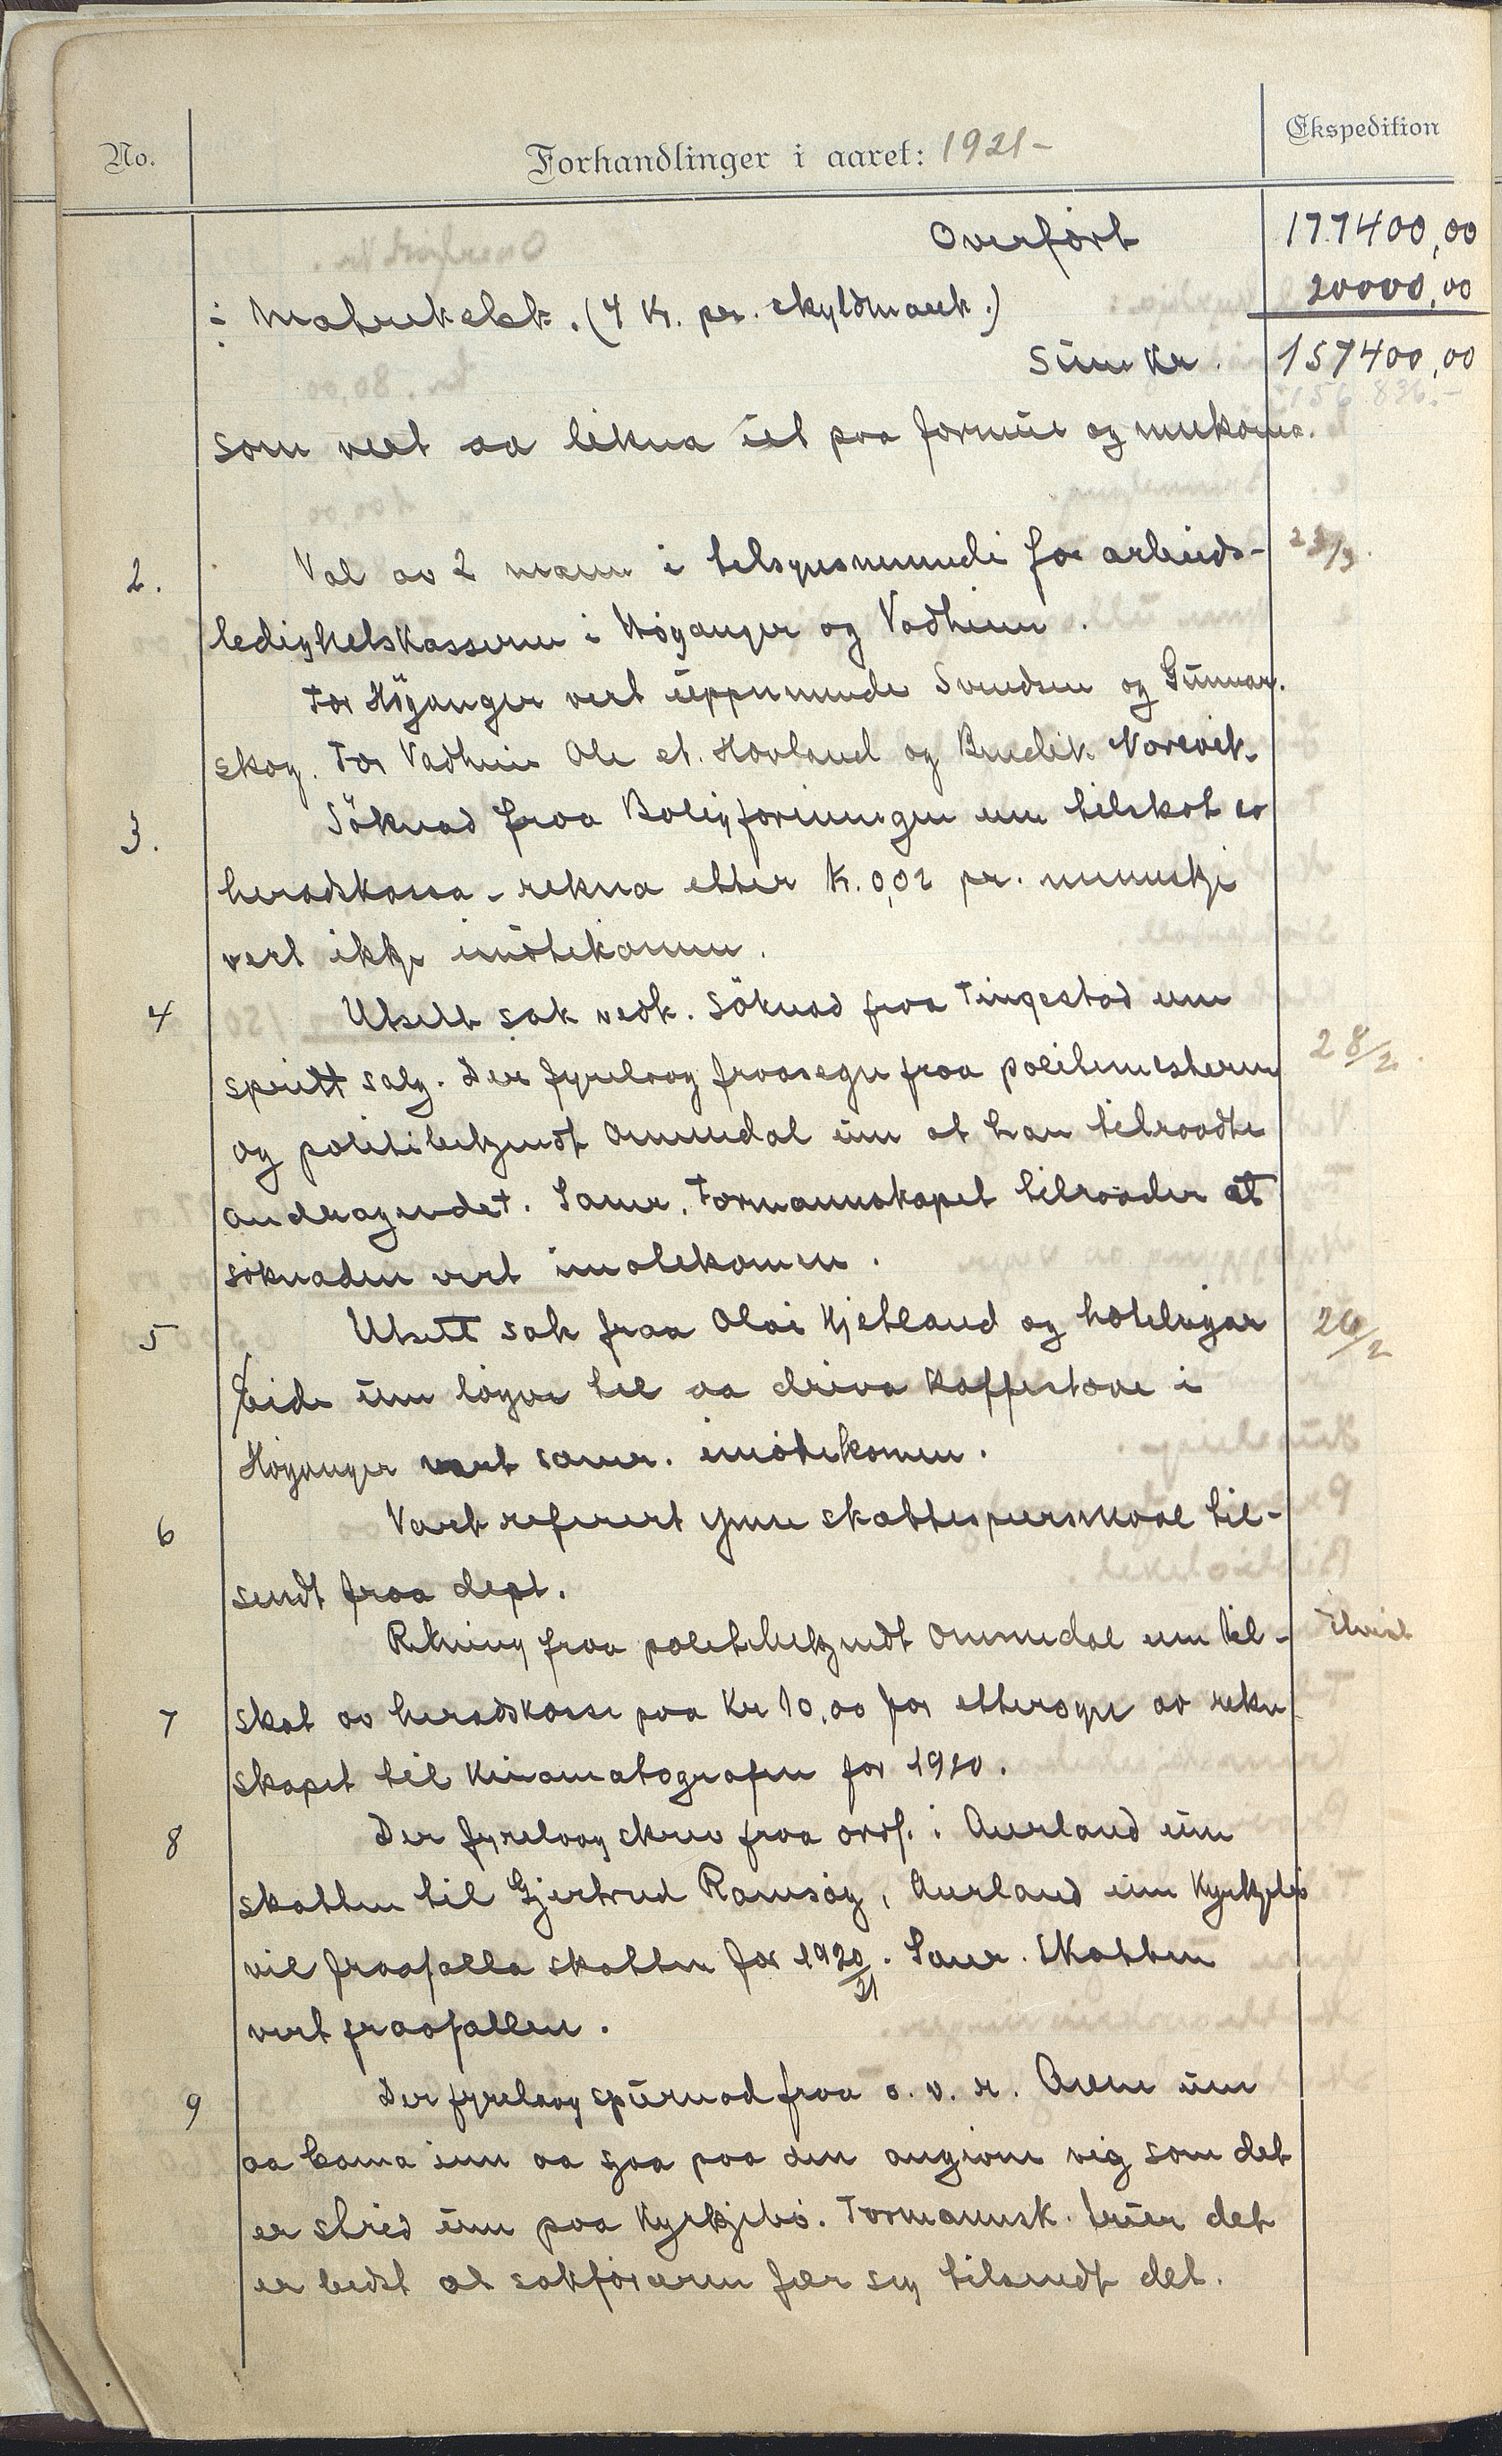 No. Forhandlinger i aaret: 1921- Ekspedition
Overført 177400,00
÷ Matrikelsk. (4 kr. pr. skyldmark.) 20000,00
Sum kr. 157400,00
156.836.-
som vert aa likna ut paa formue og innkoma.
2. Val av 2 mann i tilsynsnemndi for arbeids- 23/3.
ledighetskasserne i Høyanger og Vadheim.
For Høyanger vert uppnemnde Svendsen og Gunnar
skog. For Vadheim Ole A. Hovland og Bendik Norevik.
3. Söknad fraa Boligforeningen um tilskot av
heradskassa - rekna etter k. 0,02 pr. menneskje
vert ikkje imøtekomen.
4 Utsett sak vedk. Söknad fraa Tingestad um
spritt salg. Der fyrelaag fraasegn fraa politimesteren 28/2.
og politibetjendt Ommedal um at han tilraadte
andragendet. Samr. Formannskapet tilraader at
søknaden vert imøtekomen.
5 Utsett sak fraa Olai Kjetland og hoteleigar 26/2
Eide um løyve til aa driva kaffestove i
Høyanger vert samr. imøtekomen.
6 Vart referert ymse skattespursmaal til-
sendt fraa dept.
Rekning fraa politibetjendt Ommedal um til-
7 skot av heradskassi paa kr 10,00 for ettersyn av rekn
skapet til kinamatografen for 1920.
8 Der fyrelaag skriv fraa ordf. i Aurland um
skatten til Gjertrud Ramsøy, Aurland um Kyrkjebø
vil fraafalla skatten for 1920/21. Samr. Skatten
vert fraafallen.
9 Der fyrelaag spurnad fraa o. r. s. Aven um
aa koma inn aa sjaa paa den angivne veg som det
er strid um paa Kyrkjebø. Formannsk. trur det
er bedst at sakføraren fær seg tilsendt det.